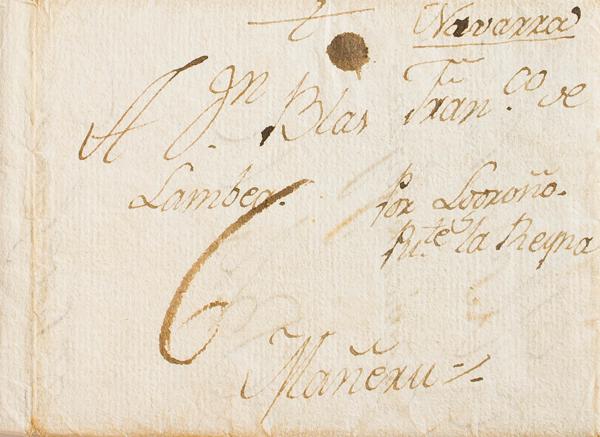 Navarra
A Dn Blas Franco de
Lambea.
Por Logroño.
Pu.te la Reyna
6
Mañeru